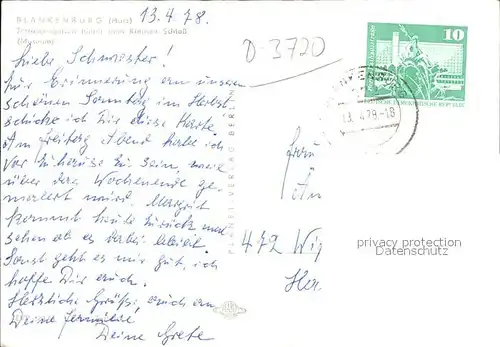 13.4.78.
BLANKENBURG (Harz)
Terrassengarten hinter dem Kleinen Schloß
(Museum)
D-3720
Liebe Schwester!
Zur Erinnerung an unseren
schönen Sonntag im Herbst
schicke ich Dir diese Karte.
Am Freitag Abend habe ich
vor zuhause zu sein, weil
über das Wochenende ge-
wird. Margrit
kommt heute zurück mal
sehen ob es dabei bleibt.
Sonst geht es mir gut, ich
hoffe Dir auch.
Herzliche Grüße, auch an
Deine Familie,
Deine Grete
PLANET-VERLAG BERLIN
10
DEUTSCHE DEMOKRATISCHE REPUBLIK
13.4.78-18
Frau
An
472 Wi
Har
privacy protection
Datenschutz